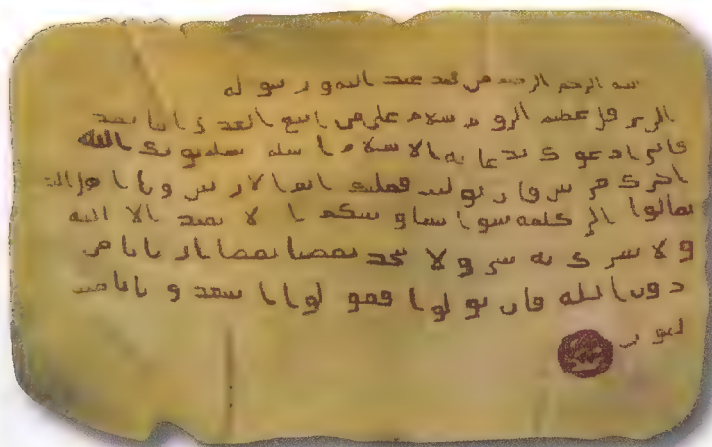 الرحمن الرحيم من محمد عبد الله و رسوله
الى هرقل عظيم الروم سلام على من اتبع الهدى اما بعد
فانى ادعوك بدعاية الاسلام اسلم تسلم يوتك الله
اجرك مرتين فان توليت فعليك اثم الاريسين ويا اهل
تعالوا الى كلمة سوا بيننا وبينكم الا نعبد الا الله
ولا نشرك به شيئا ولا يتخذ بعضنا بعضا اربابا من
دون الله فان تولوا فقولوا اشهدوا بانا مسـ
لمون